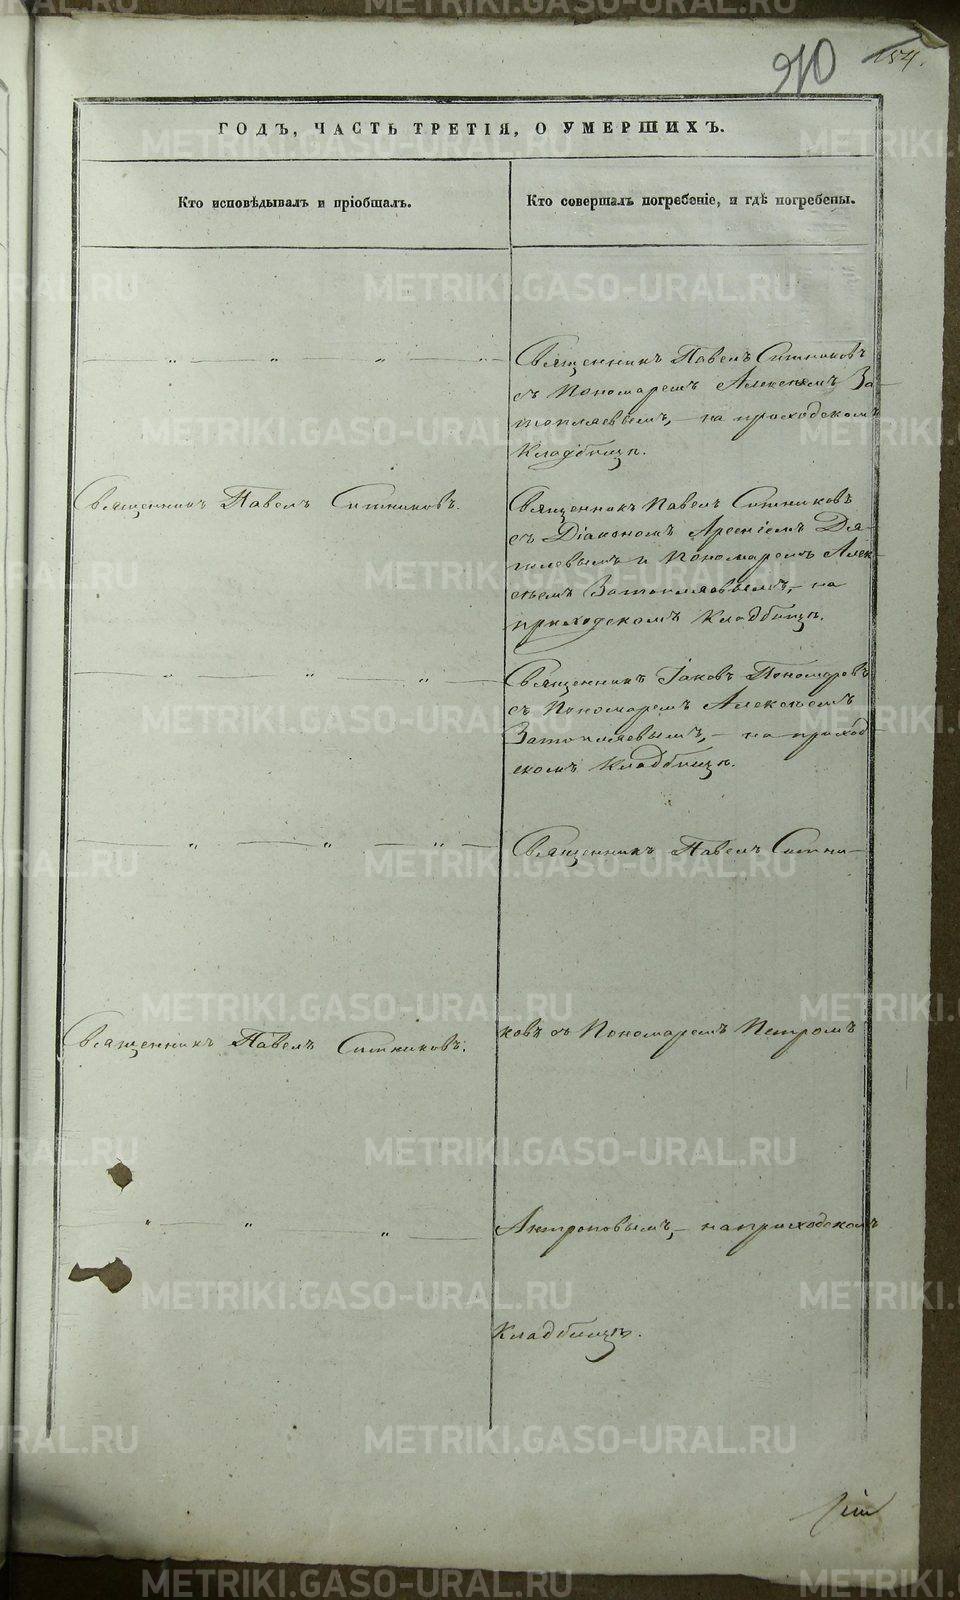 910
154.
ГОДЪ, ЧАСТЬ ТРЕТІЯ, О УМЕРШИХЪ.
Кто исповѣдывалъ и пріобщалъ.
Кто совершалъ погребеніе, и гдѣ погребены.
— „ — „ — „ — „ —
Священникъ Павелъ Ситниковъ
съ Пономаремъ Алексѣемъ За-
топляевымъ, — на приходскомъ
Кладбищѣ.
Священникъ Павелъ Ситниковъ.
Священникъ Павелъ Ситниковъ
съ Діакономъ Арсеніемъ Дя-
гилевымъ и Пономаремъ Алек-
сѣемъ Затопляевымъ, — на
приходскомъ Кладбищѣ.
— „ — „ — „ —
Священникъ Іаковъ Пономаревъ
съ Пономаремъ Алексѣемъ
Затопляевымъ, — на приход-
скомъ Кладбищѣ.
— „ — „ — „ —
Священникъ Павелъ Ситни-
Священникъ Павелъ Ситниковъ.
ковъ съ Пономаремъ Петромъ
— „ — „ — „ —
Антроповымъ, — на приходскомъ
Кладбищѣ.
METRIKI.GASO-URAL.RU